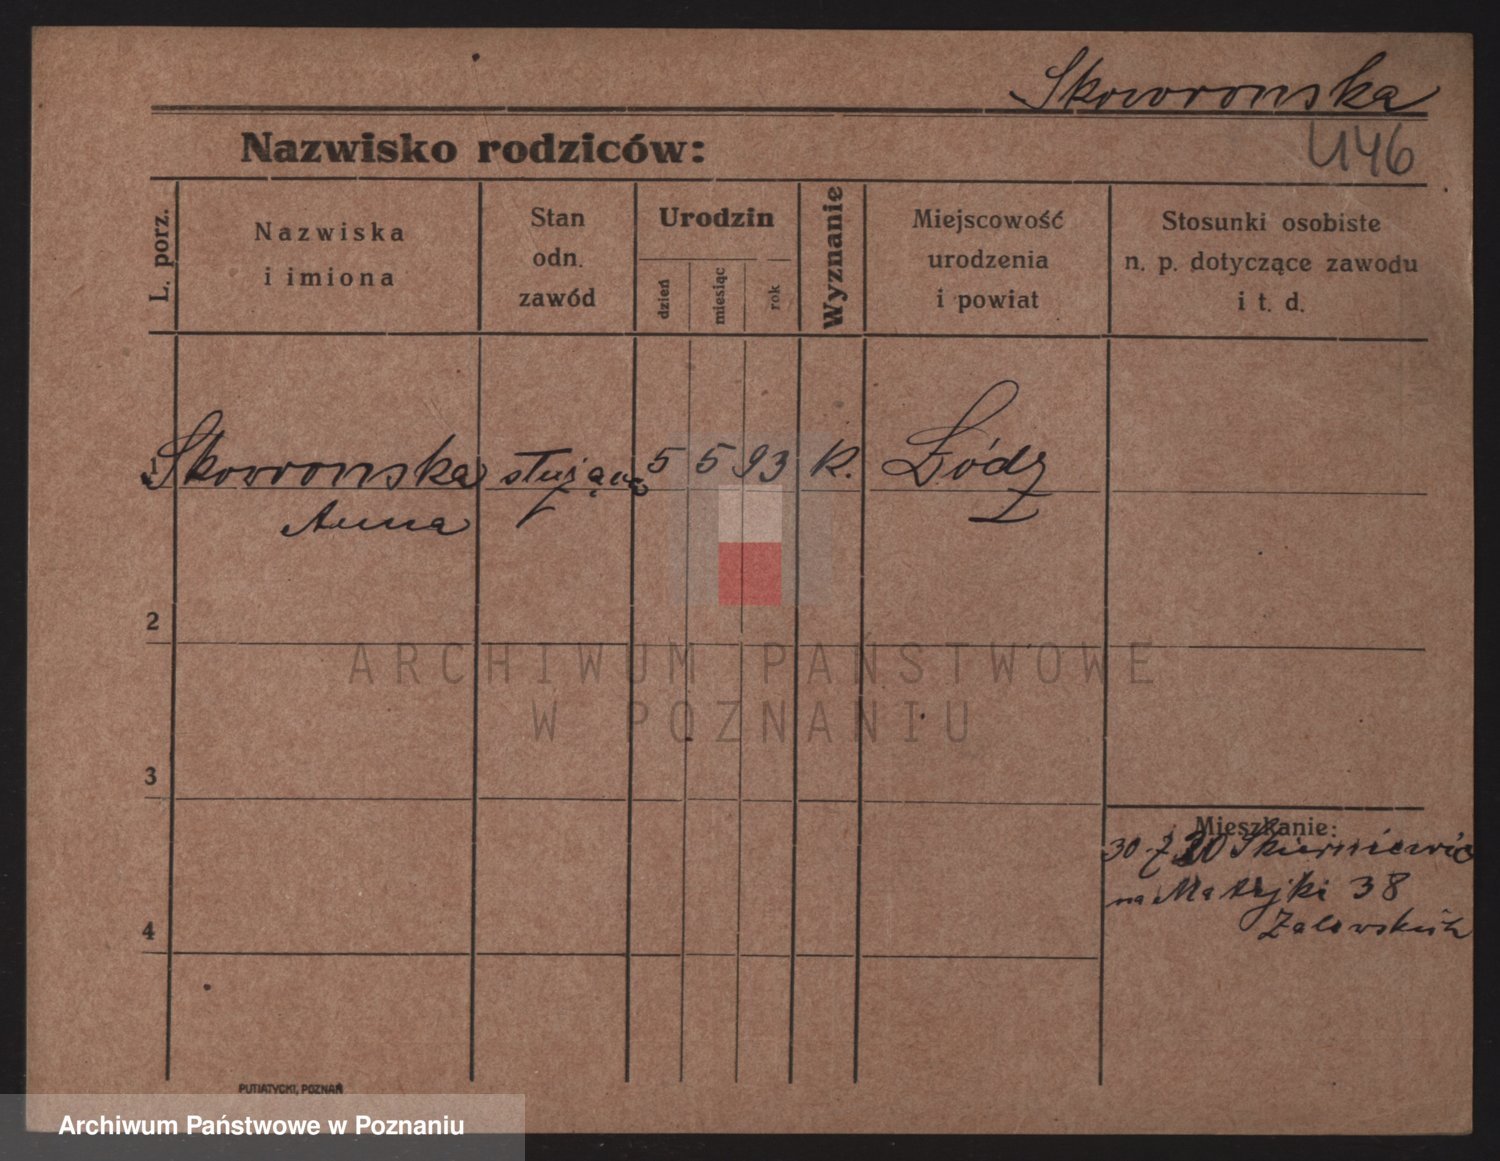 Skoworonska
Nazwisko rodziców:
U46
L. porz.
Nazwiska
i imiona
Stan
odn.
zawód
Urodzin
dzień
miesiąc
rok
Wyznanie
Miejscowość
urodzenia
i powiat
Stosunki osobiste
n. p. dotyczące zawodu
i t. d.
Skoworonska służąca 5 5 93 K. Łódź
Anna
2
ARCHIWUM PAŃSTWOWE
W POZNANIU
3
Mieszkanie:
30 7 20 Skierniewic
na Matejki 38
4
Zalewskich
PUTIATYCKI, POZNAŃ
Archiwum Państwowe w Poznaniu